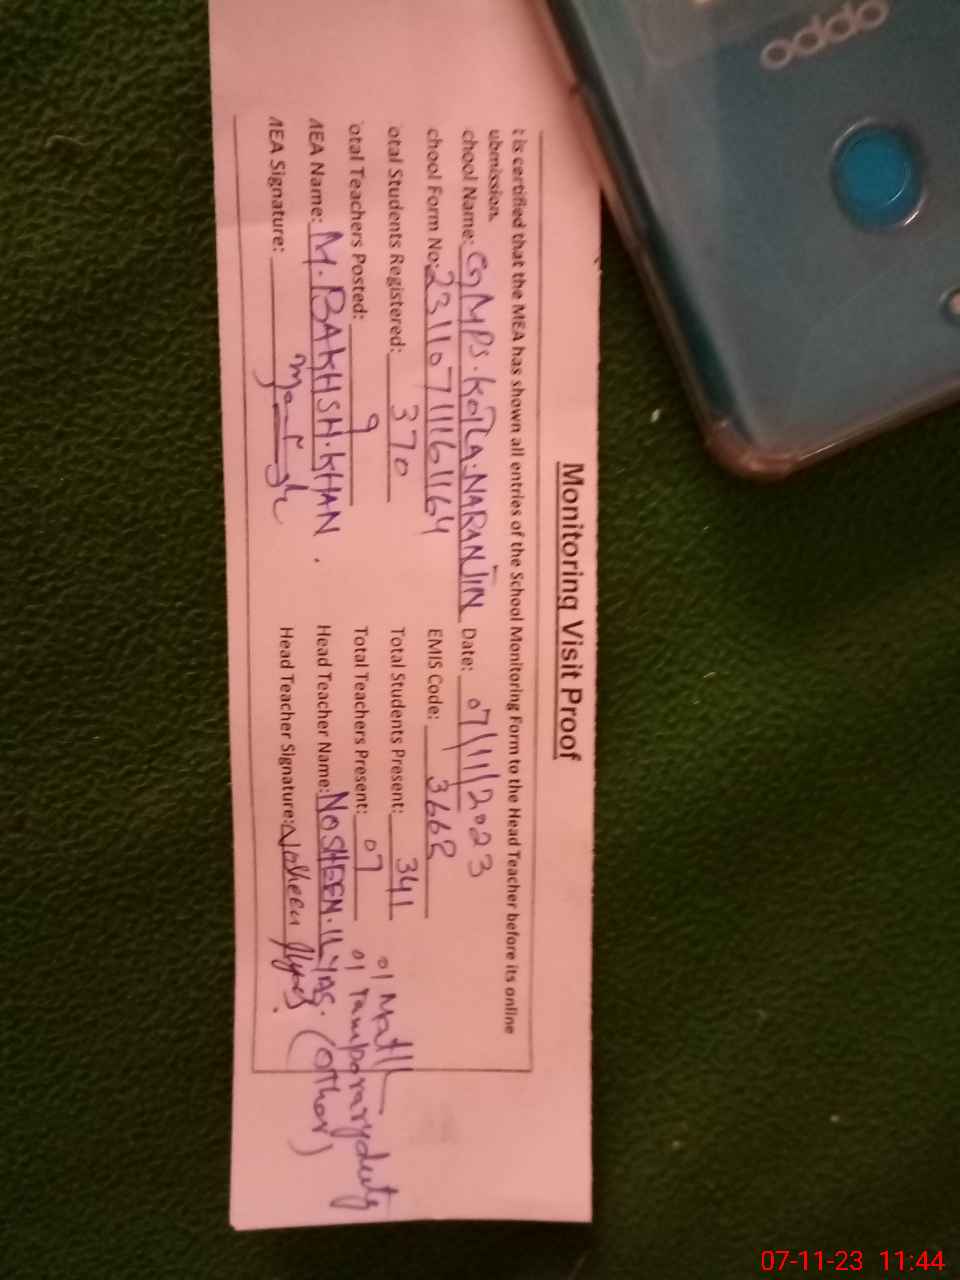 Monitoring Visit Proof
t is certified that the MEA has shown all entries of the School Monitoring Form to the Head Teacher before its online
ubmission.
chool Name: GMPS.KOTLA.NARANJIN Date: 07/11/2023
chool Form No: 23110711161164 EMIS Code: 3668
otal Students Registered: 370 Total Students Present: 341
01 Math
otal Teachers Posted: 9 Total Teachers Present: 07
01 Tamporary duty
MEA Name: M.BAKHSH.KHAN. Head Teacher Name: NOSHEEN.ILYAS. (Other)
MEA Signature: Head Teacher Signature: Nosheen Ilyas.
oppo
07-11-23 11:44